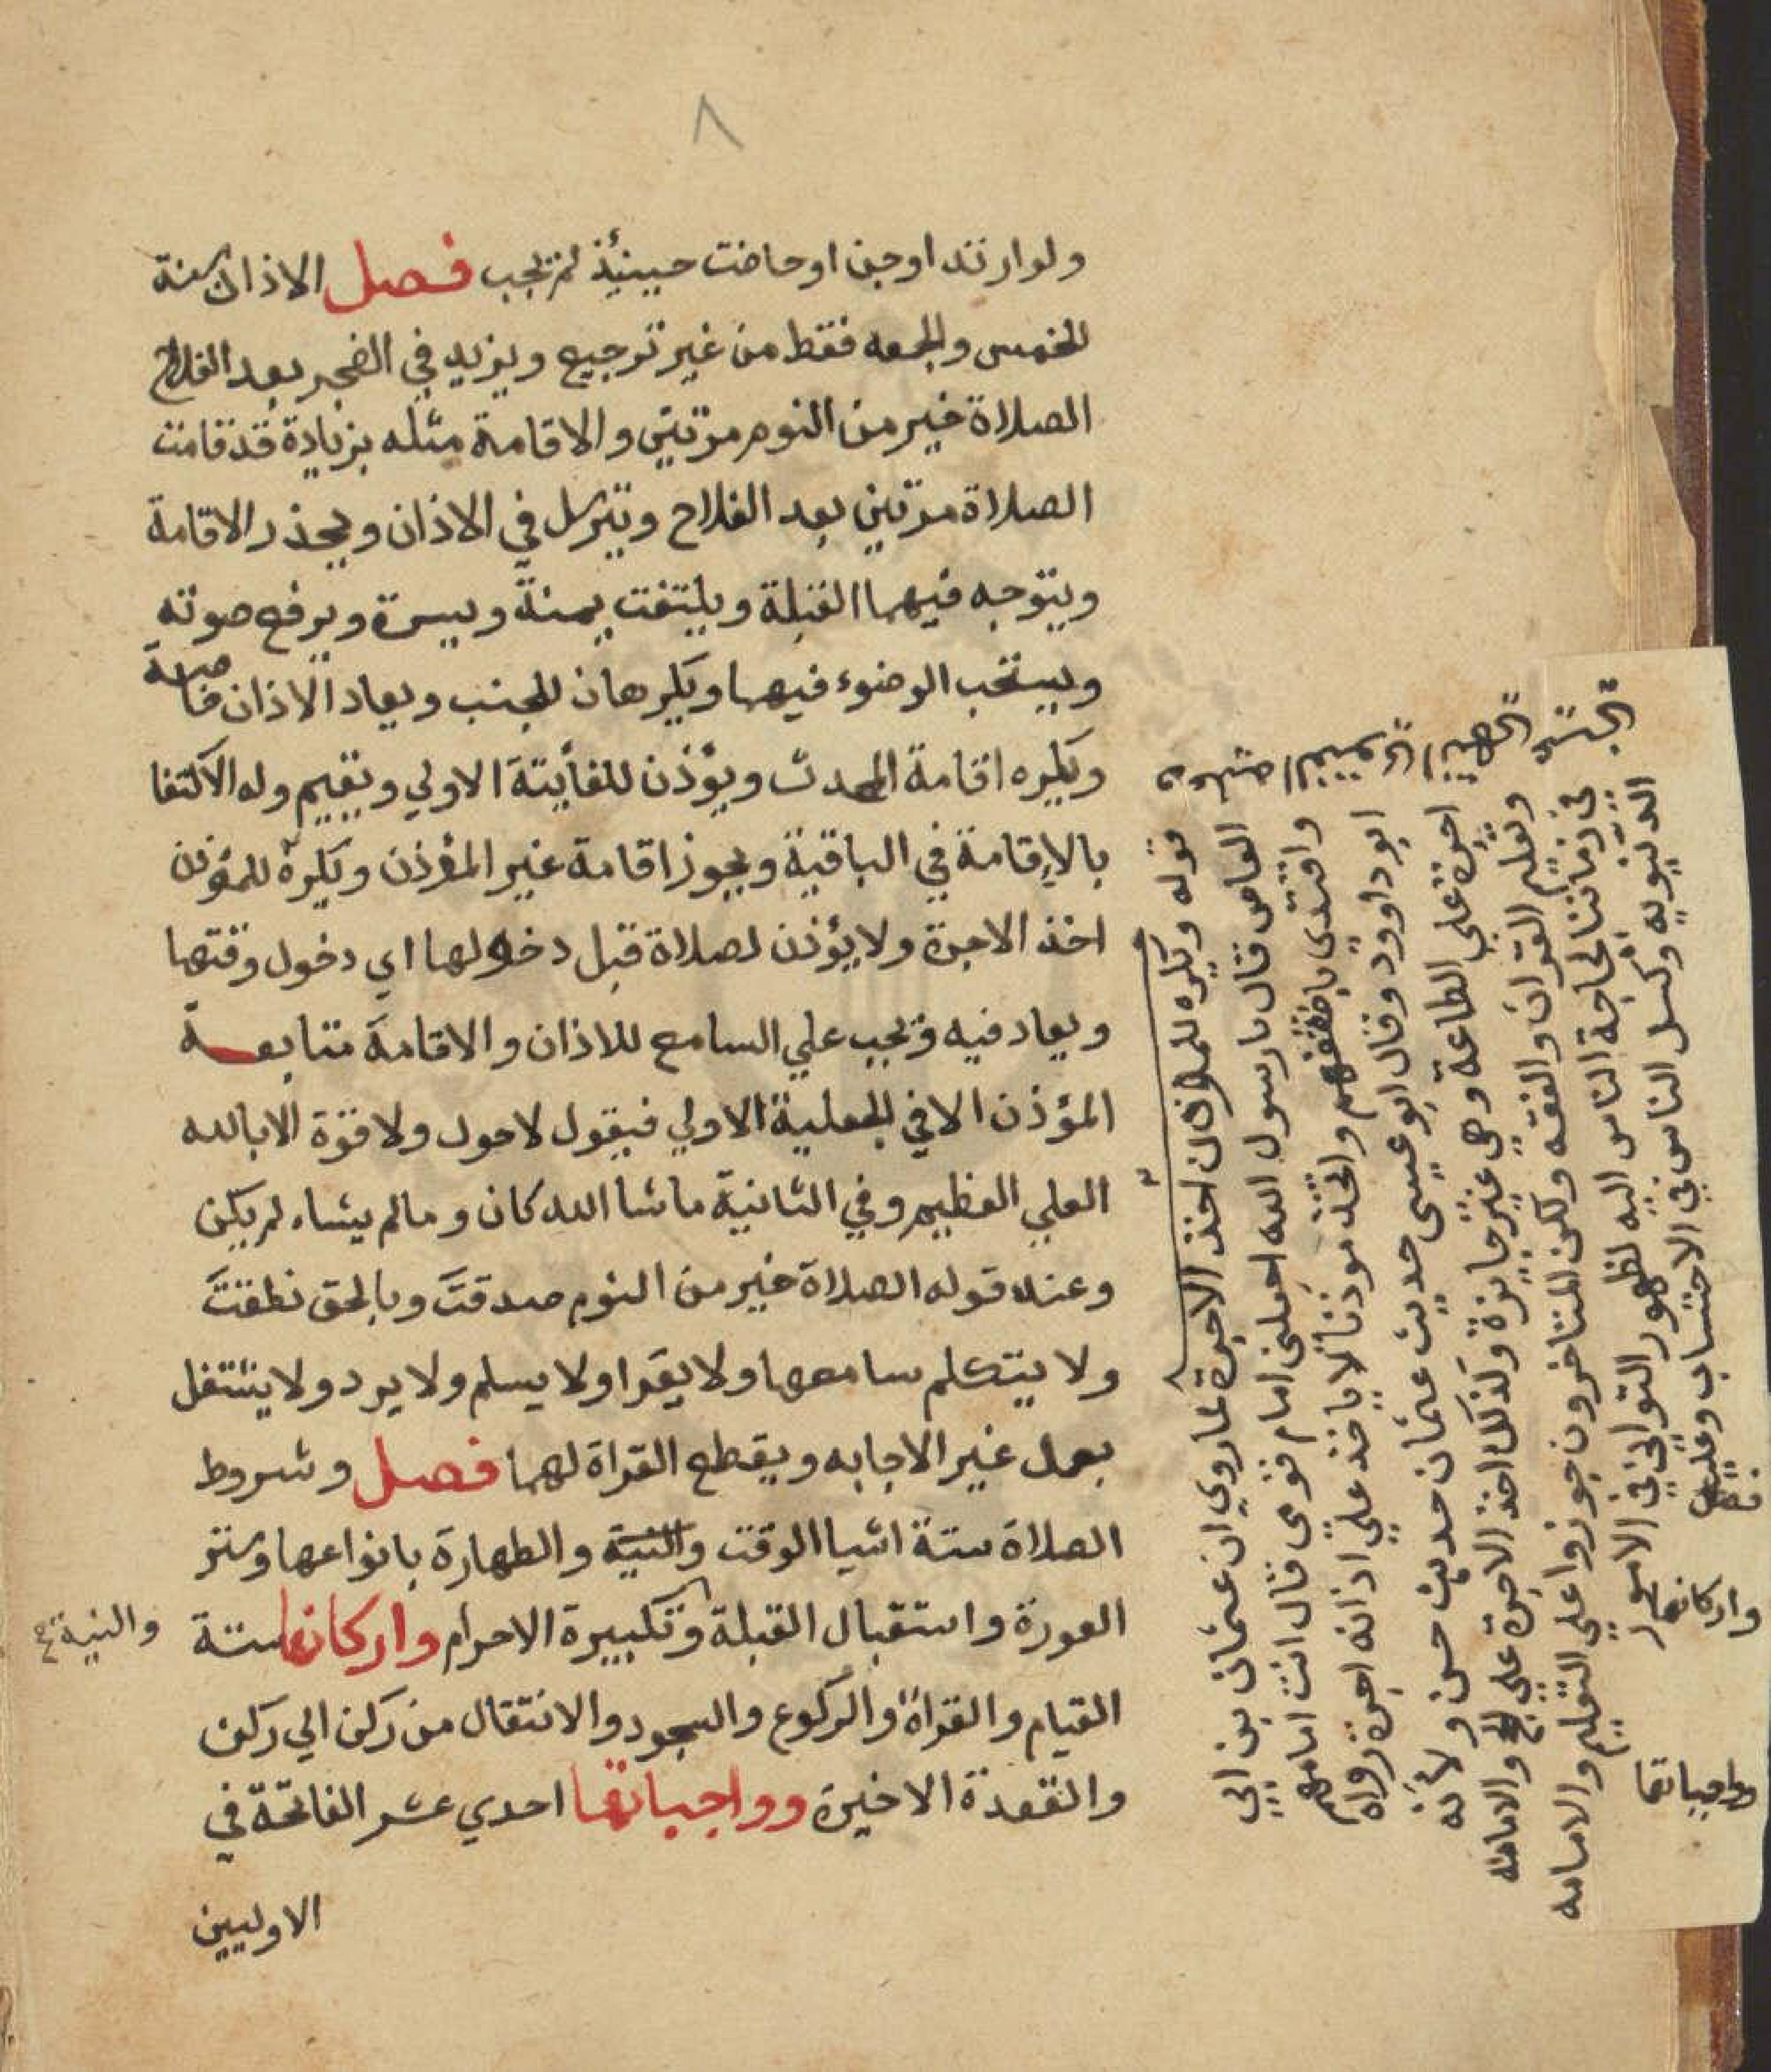 ٨
ولو ارتد او جن او حاضت حينئذ لم تجب فصل الاذان سنة
للخمس والجمعه فقط من غير ترجيع ويزيد في الفجر بعد الفلاح
الصلاة خير من النوم مرتين والاقامة مثله بزيادة قد قامت
الصلاة مرتين بعد الفلاح ويترسل في الاذان ويحذر الاقامة
ويتوجه فيهما القبلة ويلتفت يمنة ويسرة ويرفع صوته
ويستحب الوضوء فيهما ويكرهان للجنب ويعاد الاذان خاصة
ويكره اقامة المحدث ويؤذن للفأيتة الاولي ويقيم وله الاكتفا
بالاقامة في الباقية ويجوز اقامة غير المؤذن ويكره للمؤذن
اخذ الاجرة ولا يؤذن لصلاة قبل دخولها اي دخول وقتها
ويعاد فيه ويجب علي السامع للاذان والاقامة متابعة
المؤذن الا في الجعلية الاولي فيقول لا حول ولا قوة الا بالله
العلي العظيم وفي الثانية ما شا الله كان وما لم يشاء لم يكن
وعند قوله الصلاة خير من النوم صدقت وبالحق نطقت
ولا يتكلم سامعهما ولا يقرا ولا يسلم ولا يرد ولا يشتغل
بعمل غير الاجابه ويقطع القراة لهما فصل وشروط
الصلاة ستة اشيا الوقت والنية والطهارة بانواعها وستر
العورة واستقبال القبلة وتكبيرة الاحرام واركانها ستة
والنية صح
القيام والقراة والركوع والسجود والانتقال من ركن الي ركن
والقعدة الاخيرة وواجباتها احدي عشر الفاتحة في
الاوليين
قوله ويكره للمؤذن اخذ الاجرة لما روي ان عثمان بن ابي
العاص قال يا رسول الله اجعلني امام قومي قال انت امامهم
واقتدي باضعفهم واتخذ موذنا لا ياخذ علي اذانه اجرة رواه
ابو داوود وقال ابو عيسى حديث عثمان حديث حسن ولأنه
اجرة علي الطاعة وهي غير جايزة ولذلك اخذ الاجرة علي الحج والامامه
وتعليم القران والفقه ولكن المتاخرون جوزوا علي التعليم والامامه
في زماننا لحاجة الناس اليه لظهور التواني في الامور
الدينيويه وكسل الناس في الاحتساب وعليه
فصل
واركانها
وواجباتها